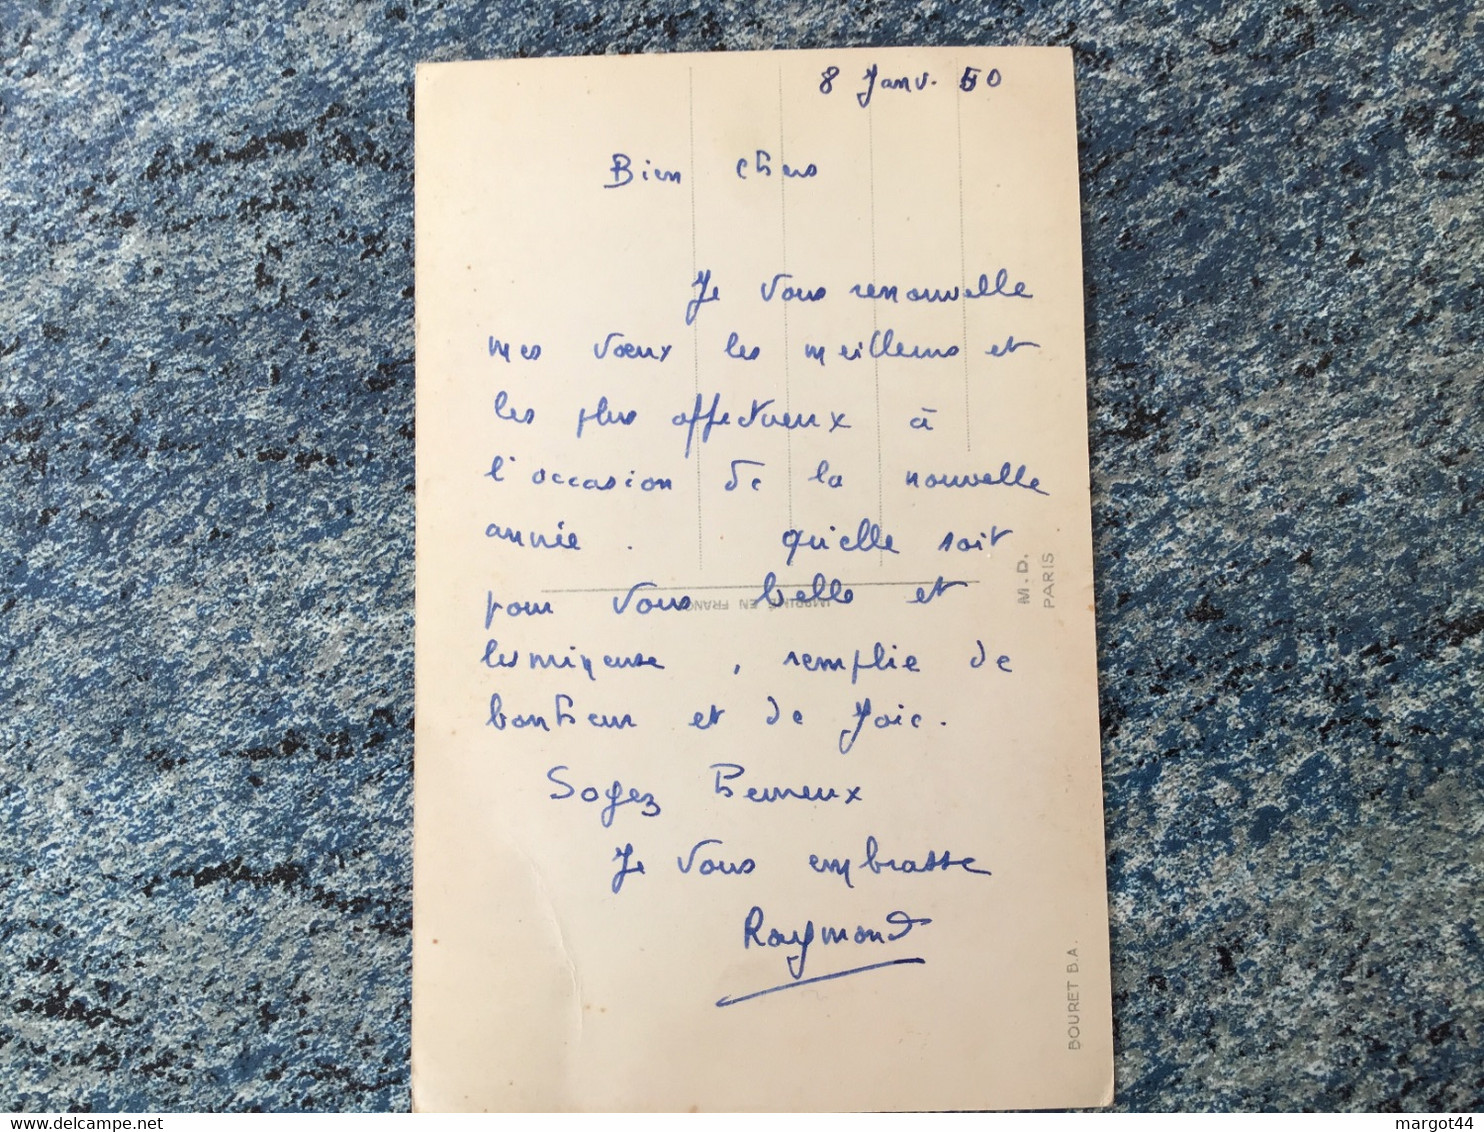 8 Janv. 50
Bien chers
Je vous renouvelle
mes vœux les meilleurs et
les plus affectueux à
l'occasion de la nouvelle
année. qu'elle soit
pour vous belle et
lumineuse, remplie de
bonheur et de joie.
Soyez heureux
Je vous embrasse
Raymond
IMPRIMÉ EN FRANCE
M.D.
PARIS
BOURET B.A.
Delcampe.net
margot44